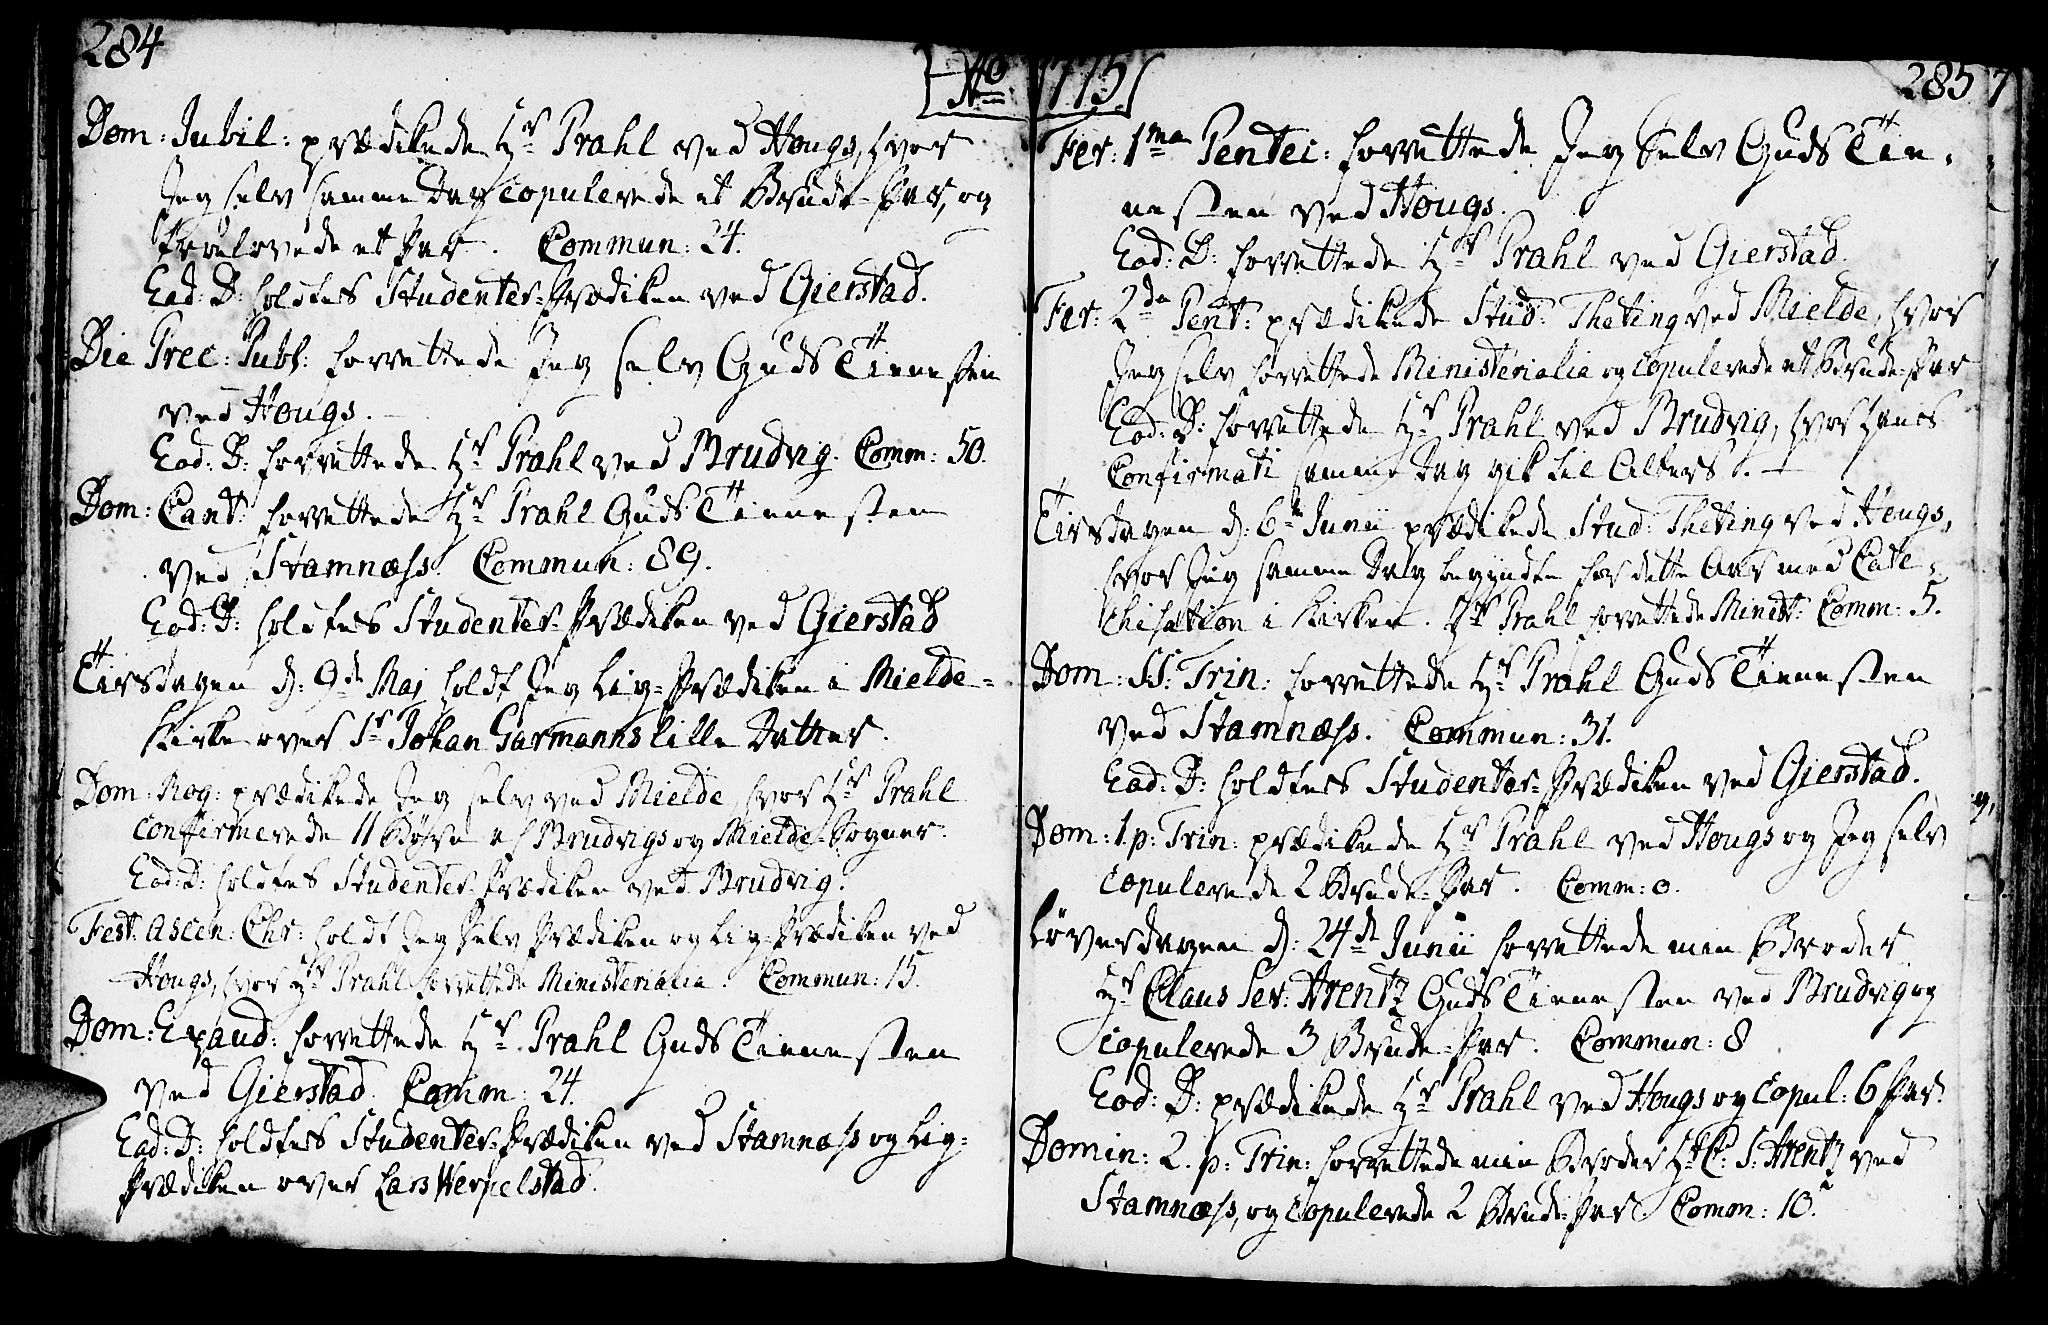 284
[Ao 1775]
285
Dom: Jubil: prædikede Hr Prahl ved Hougs, hvor
Jeg selv samme Dag copulerede et Brude-Par, og
troelovede et Par. Commun: 24.
Eod: D: holdtes Studenter-Prædiken ved Gierstad.
Die Prec: Publ: forrettede Jeg selv Guds Tienesten
ved Hougs.
Eod: D: forrettede Hr Prahl ved Brudvig. Comm: 50.
Dom: Cant: forrettede Hr Prahl Guds Tienesten
ved Stamnæss. Commun: 89.
Eod: D: holdtes Studenter-Prædiken ved Gierstad
Tirsdagen d: 9de Maj holdt Jeg Lig-Prædiken i Mielde-
Kirke over Sr Johan Garmanns lille Datter.
Dom: Rog: prædikede Jeg selv ved Mielde, hvor Hr Prahl
confirmerede 11 Børn af Brudvigs og Mielde-Sogner.
Eod: D: holdtes Studenter-Prædiken ved Brudvig.
Fest: Ascen: Chr: holdt Jeg selv Prædiken og Lig-Prædiken ved
Hougs, hvor Hr Prahl forrettede Ministerialia. Commun: 15.
Dom: Exaud: forrettede Hr Prahl Guds Tienesten
ved Gierstad. Comm: 24.
Eod: D: holdtes Studenter-Prædiken ved Stamnæss og Lig-
Prædiken over Lars Werpelstad.
Fer: 1ma Pentec: forrettede Jeg selv Guds Tie-
nesten ved Hougs.
Eod: D: forrettede Hr Prahl ved Gierstad.
Fer: 2da Pent: prædikede Stud: Theting ved Mielde, hvor
Jeg selv forrettede Ministerialia og copulerede et Brude-Par
Eod: D: forrettede Hr Prahl ved Brudvig, hvor hans
Confirmati samme Dag gik til Alters.
Tirsdagen d: 6te Junii prædikede Stud: Theting ved Hougs,
hvor Jeg samme Dag begyndte for dette Aar med Cate-
chisation i Kirken. Hr Prahl forrettede Minist: Comm: 5.
Dom: SS: Trin: forrettede Hr Prahl Guds Tienesten
ved Stamnæss. Commun: 31.
Eod: D: holdtes Studenter-Prædiken ved Gierstad.
Dom: 1 p: Trin: prædikede Hr Prahl ved Hougs og Jeg selv
copulerede 2 Brude-Par. Comm: 0.
Løverdagen d: 24de Junii forrettede min Broder
Hr Claus Sev: Arentz Guds Tienesten ved Brudvig og
copulerede 3 Brude-Par. Commun: 8
Eod: D: prædikede Hr Prahl ved Hougs og copul: 6 Par.
Domin: 2. p: Trin: forrettede min Broder Hr C: S: Arentz ved
Stamnæss, og copulerede 2 Brude-Par. Comm: 10.